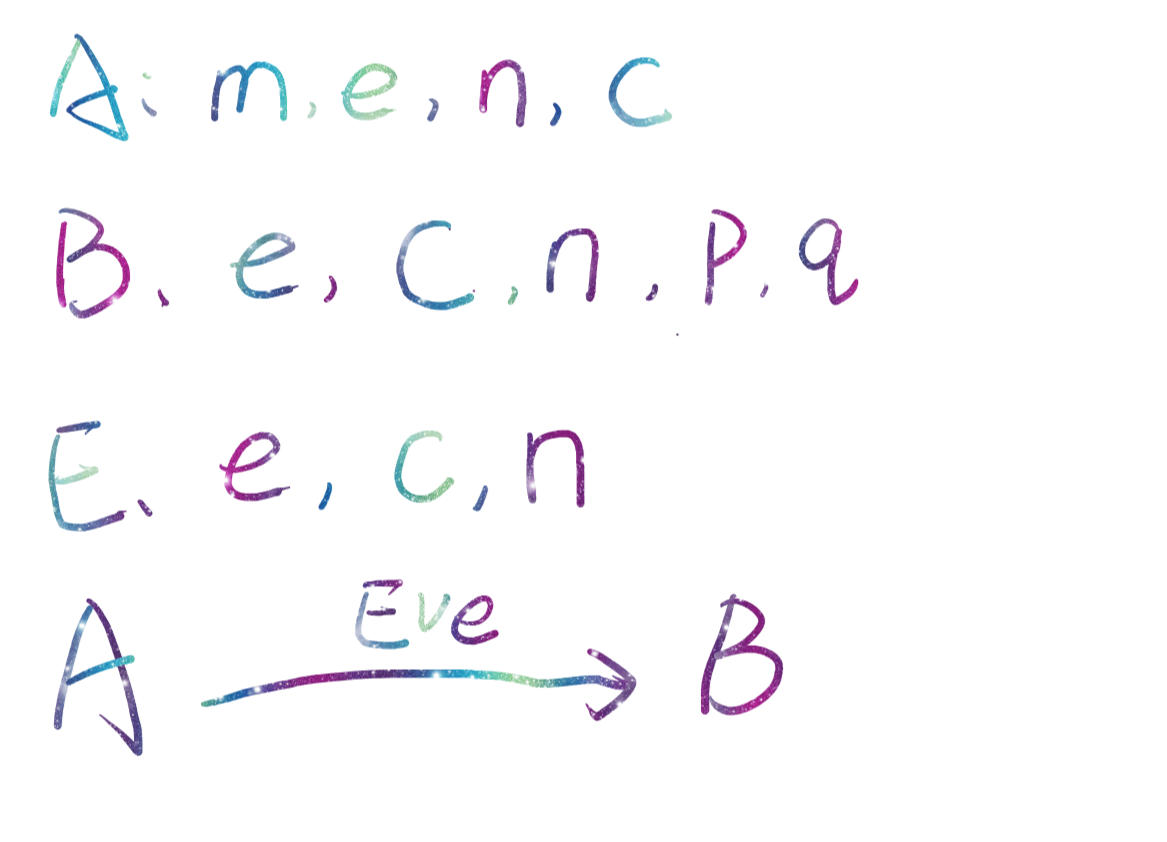 A: m, e, n, c
B, e, C, n, P, q
E, e, c, n
Eve
A → B